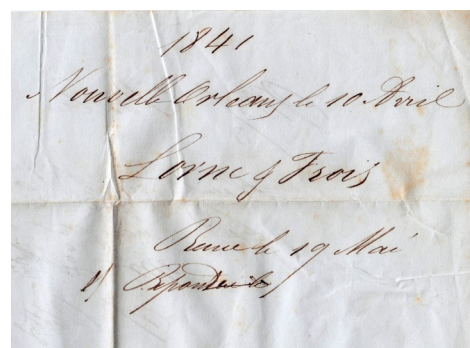 1841
Nouvelle Orleans le 10 Avril
Lorne & Frois
Recue le 19 Mai
Repondu le